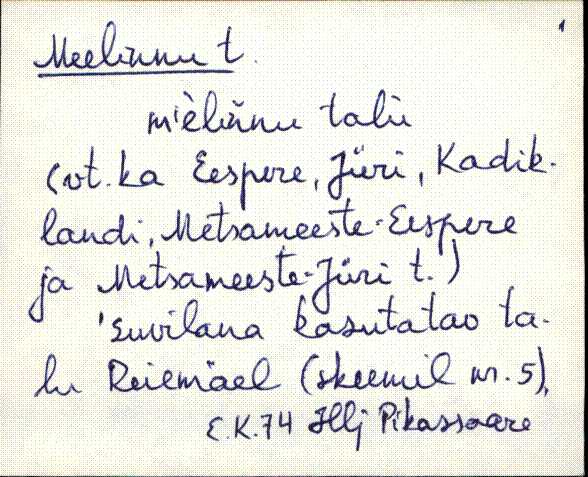 Meelinnu t.
mi̬èlinnu talù
(vt. ka Eespere, Jüri, Kadik-
landi, Metsameeste-Eespere
ja Metsameeste-Jüri t.)
'suvilana kasutatav ta-
lu Reiemäel (skeemil nr. 5),
E.K.74 Hlj Pikassaare